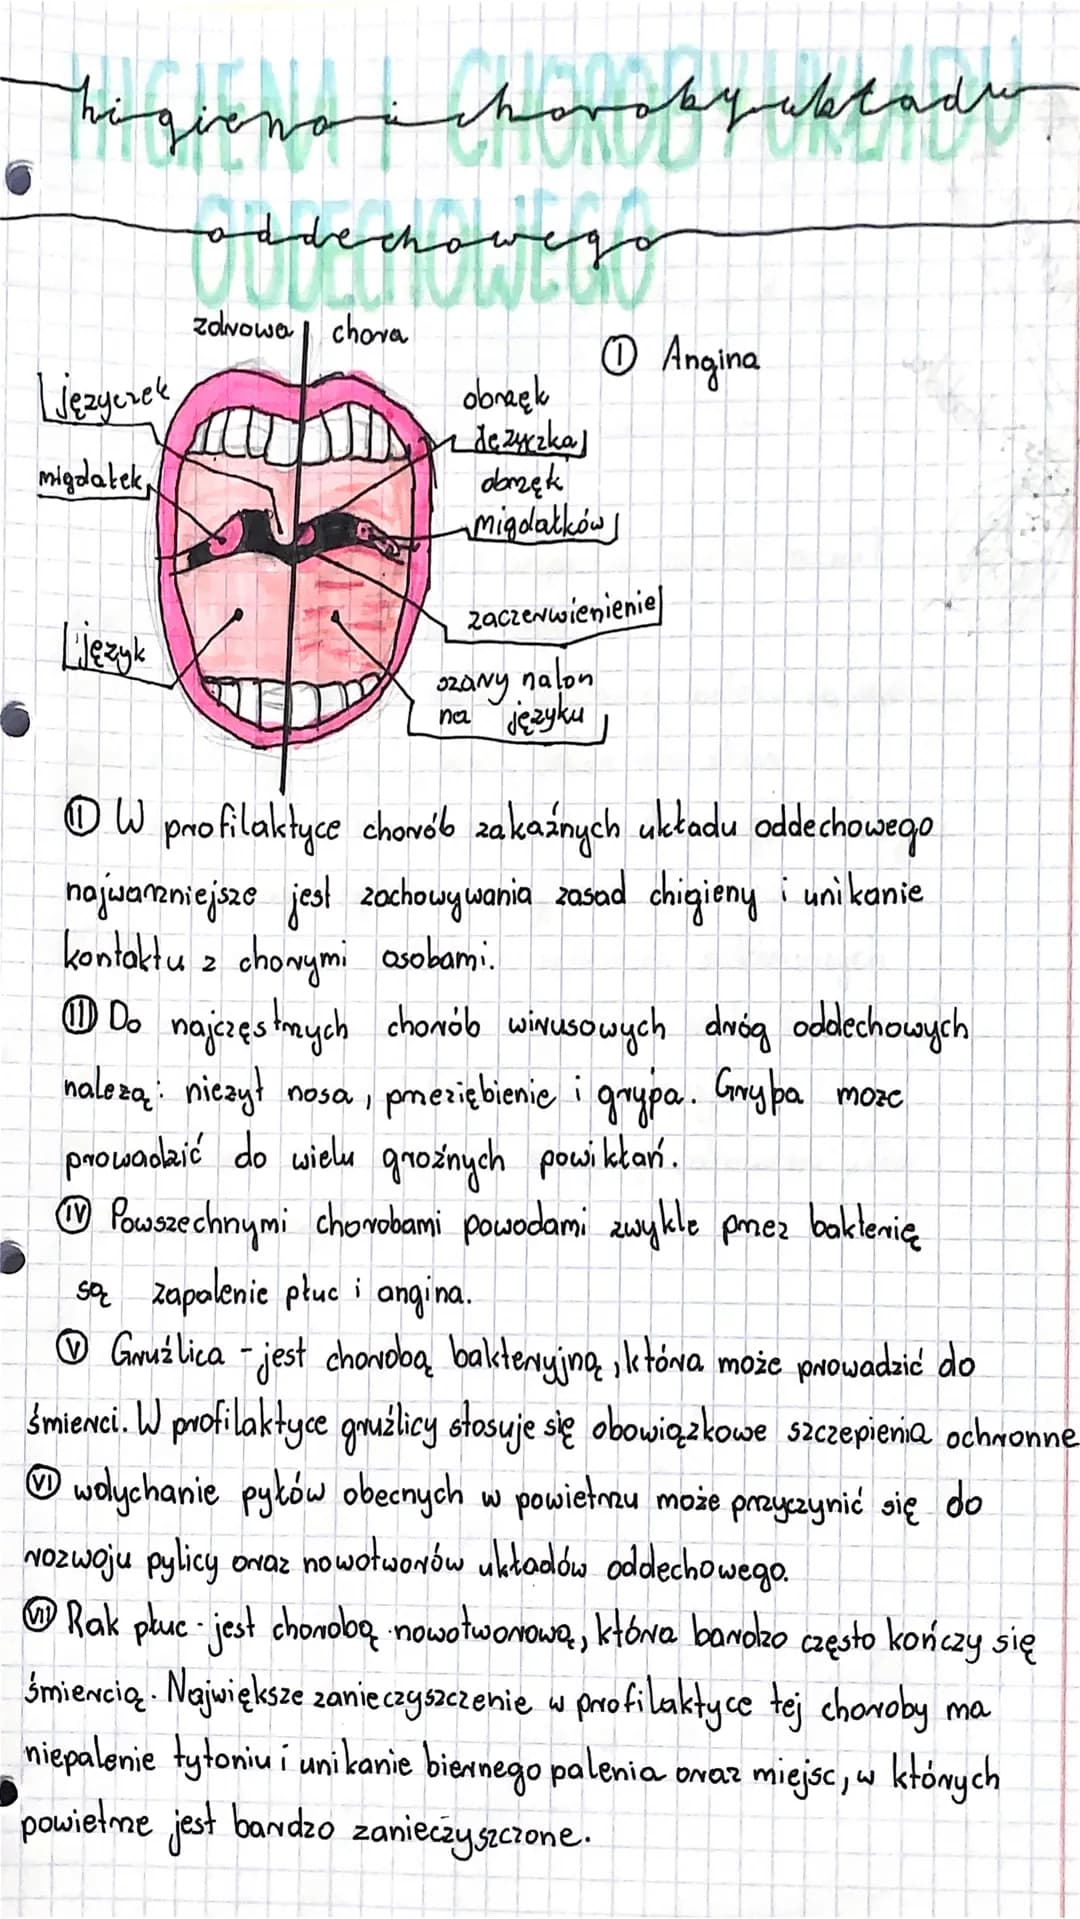 HIGIENA I CHOROBY UKŁADU
higiena i choroby układu
ODDECHOWEGO
oddechowego
zdrowa | chora
① Angina
języczek
obrzęk
języczka
migdałek
obrzęk
migdałków
zaczerwienienie
język
szary nalon
na języku
Ⅱ W profilaktyce chorób zakaźnych układu oddechowego
najwarzniejsze jest zachowywania zasad chigieny i unikanie
kontaktu z chorymi osobami.
Ⅲ Do najczęstrzych chorób wirusowych dróg oddechowych
nalezą: niezyt nosa, przeziębienie i grypa. Grypa moze
prowadzić do wielu groźnych powikłań.
Ⅳ Powszechnymi chorobami powodami zwykle przez bakterię
są zapalenie płuc i angina.
Ⅴ Gruźlica - jest chorobą bakteryjną, która może prowadzić do
śmierci. W profilaktyce gruźlicy stosuje się obowiązkowe szczepienia ochronne
Ⅵ wdychanie pyłów obecnych w powietrzu może przyczynić się do
rozwoju pylicy oraz nowotworów układów oddechowego.
Ⅶ Rak płuc - jest chorobą nowotworową, która bardzo często kończy się
śmiercią. Największe zanieczyszczenie w profilaktyce tej choroby ma
niepalenie tytoniu i unikanie biernego palenia oraz miejsc, w których
powietrze jest bardzo zanieczyszczone.